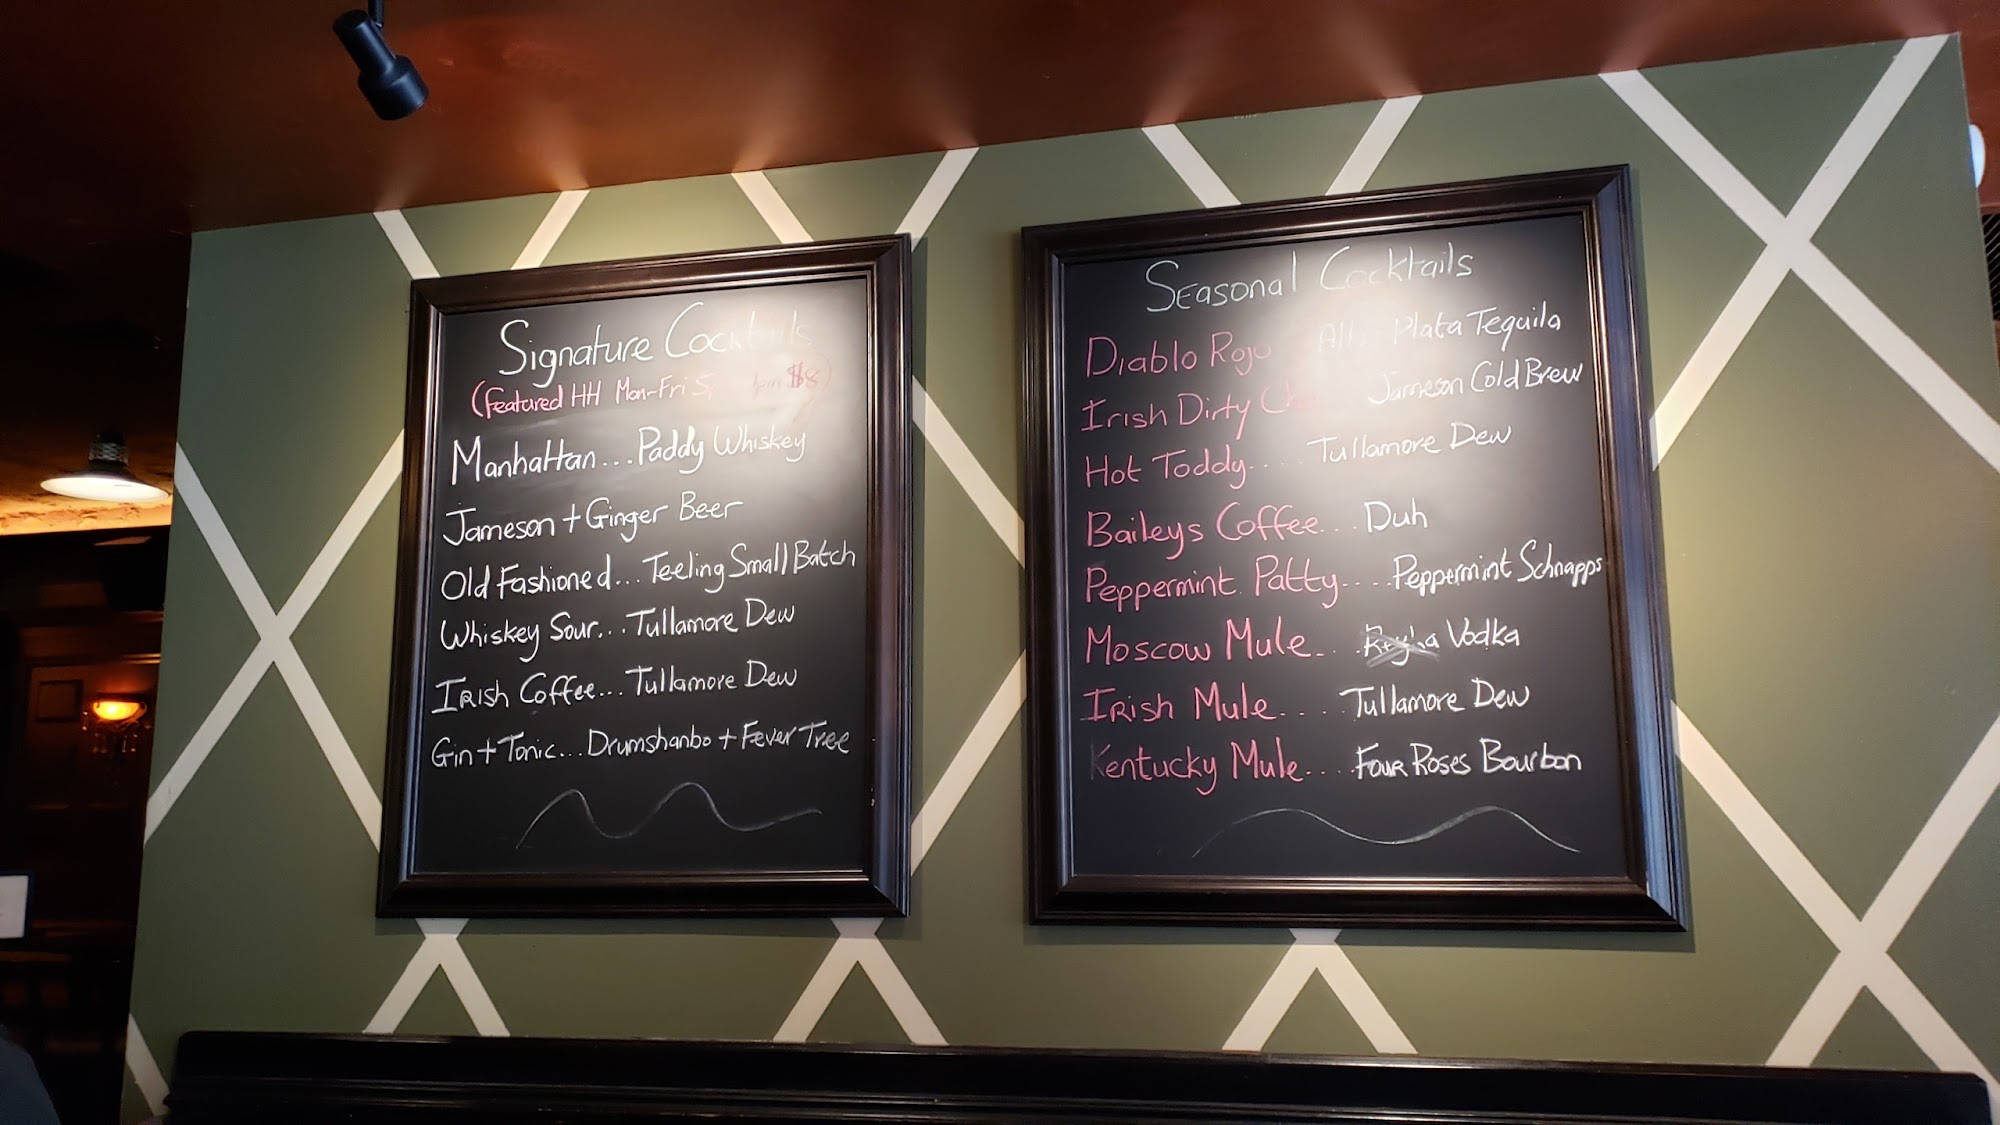 Signature Cocktails
(Featured HH Mon-Fri $8)
Manhattan...Paddy Whiskey
Jameson + Ginger Beer
Old Fashioned...Teeling Small Batch
Whiskey Sour...Tullamore Dew
Irish Coffee...Tullamore Dew
Gin + Tonic...Drumshanbo + Fever Tree
Seasonal Cocktails
Diablo Rojo Plata Tequila
Irish Dirty Jameson Cold Brew
Hot Toddy.....Tullamore Dew
Baileys Coffee...Duh
Peppermint Patty.....Peppermint Schnapps
Moscow Mule.... Vodka
Irish Mule.....Tullamore Dew
Kentucky Mule.....Four Roses Bourbon